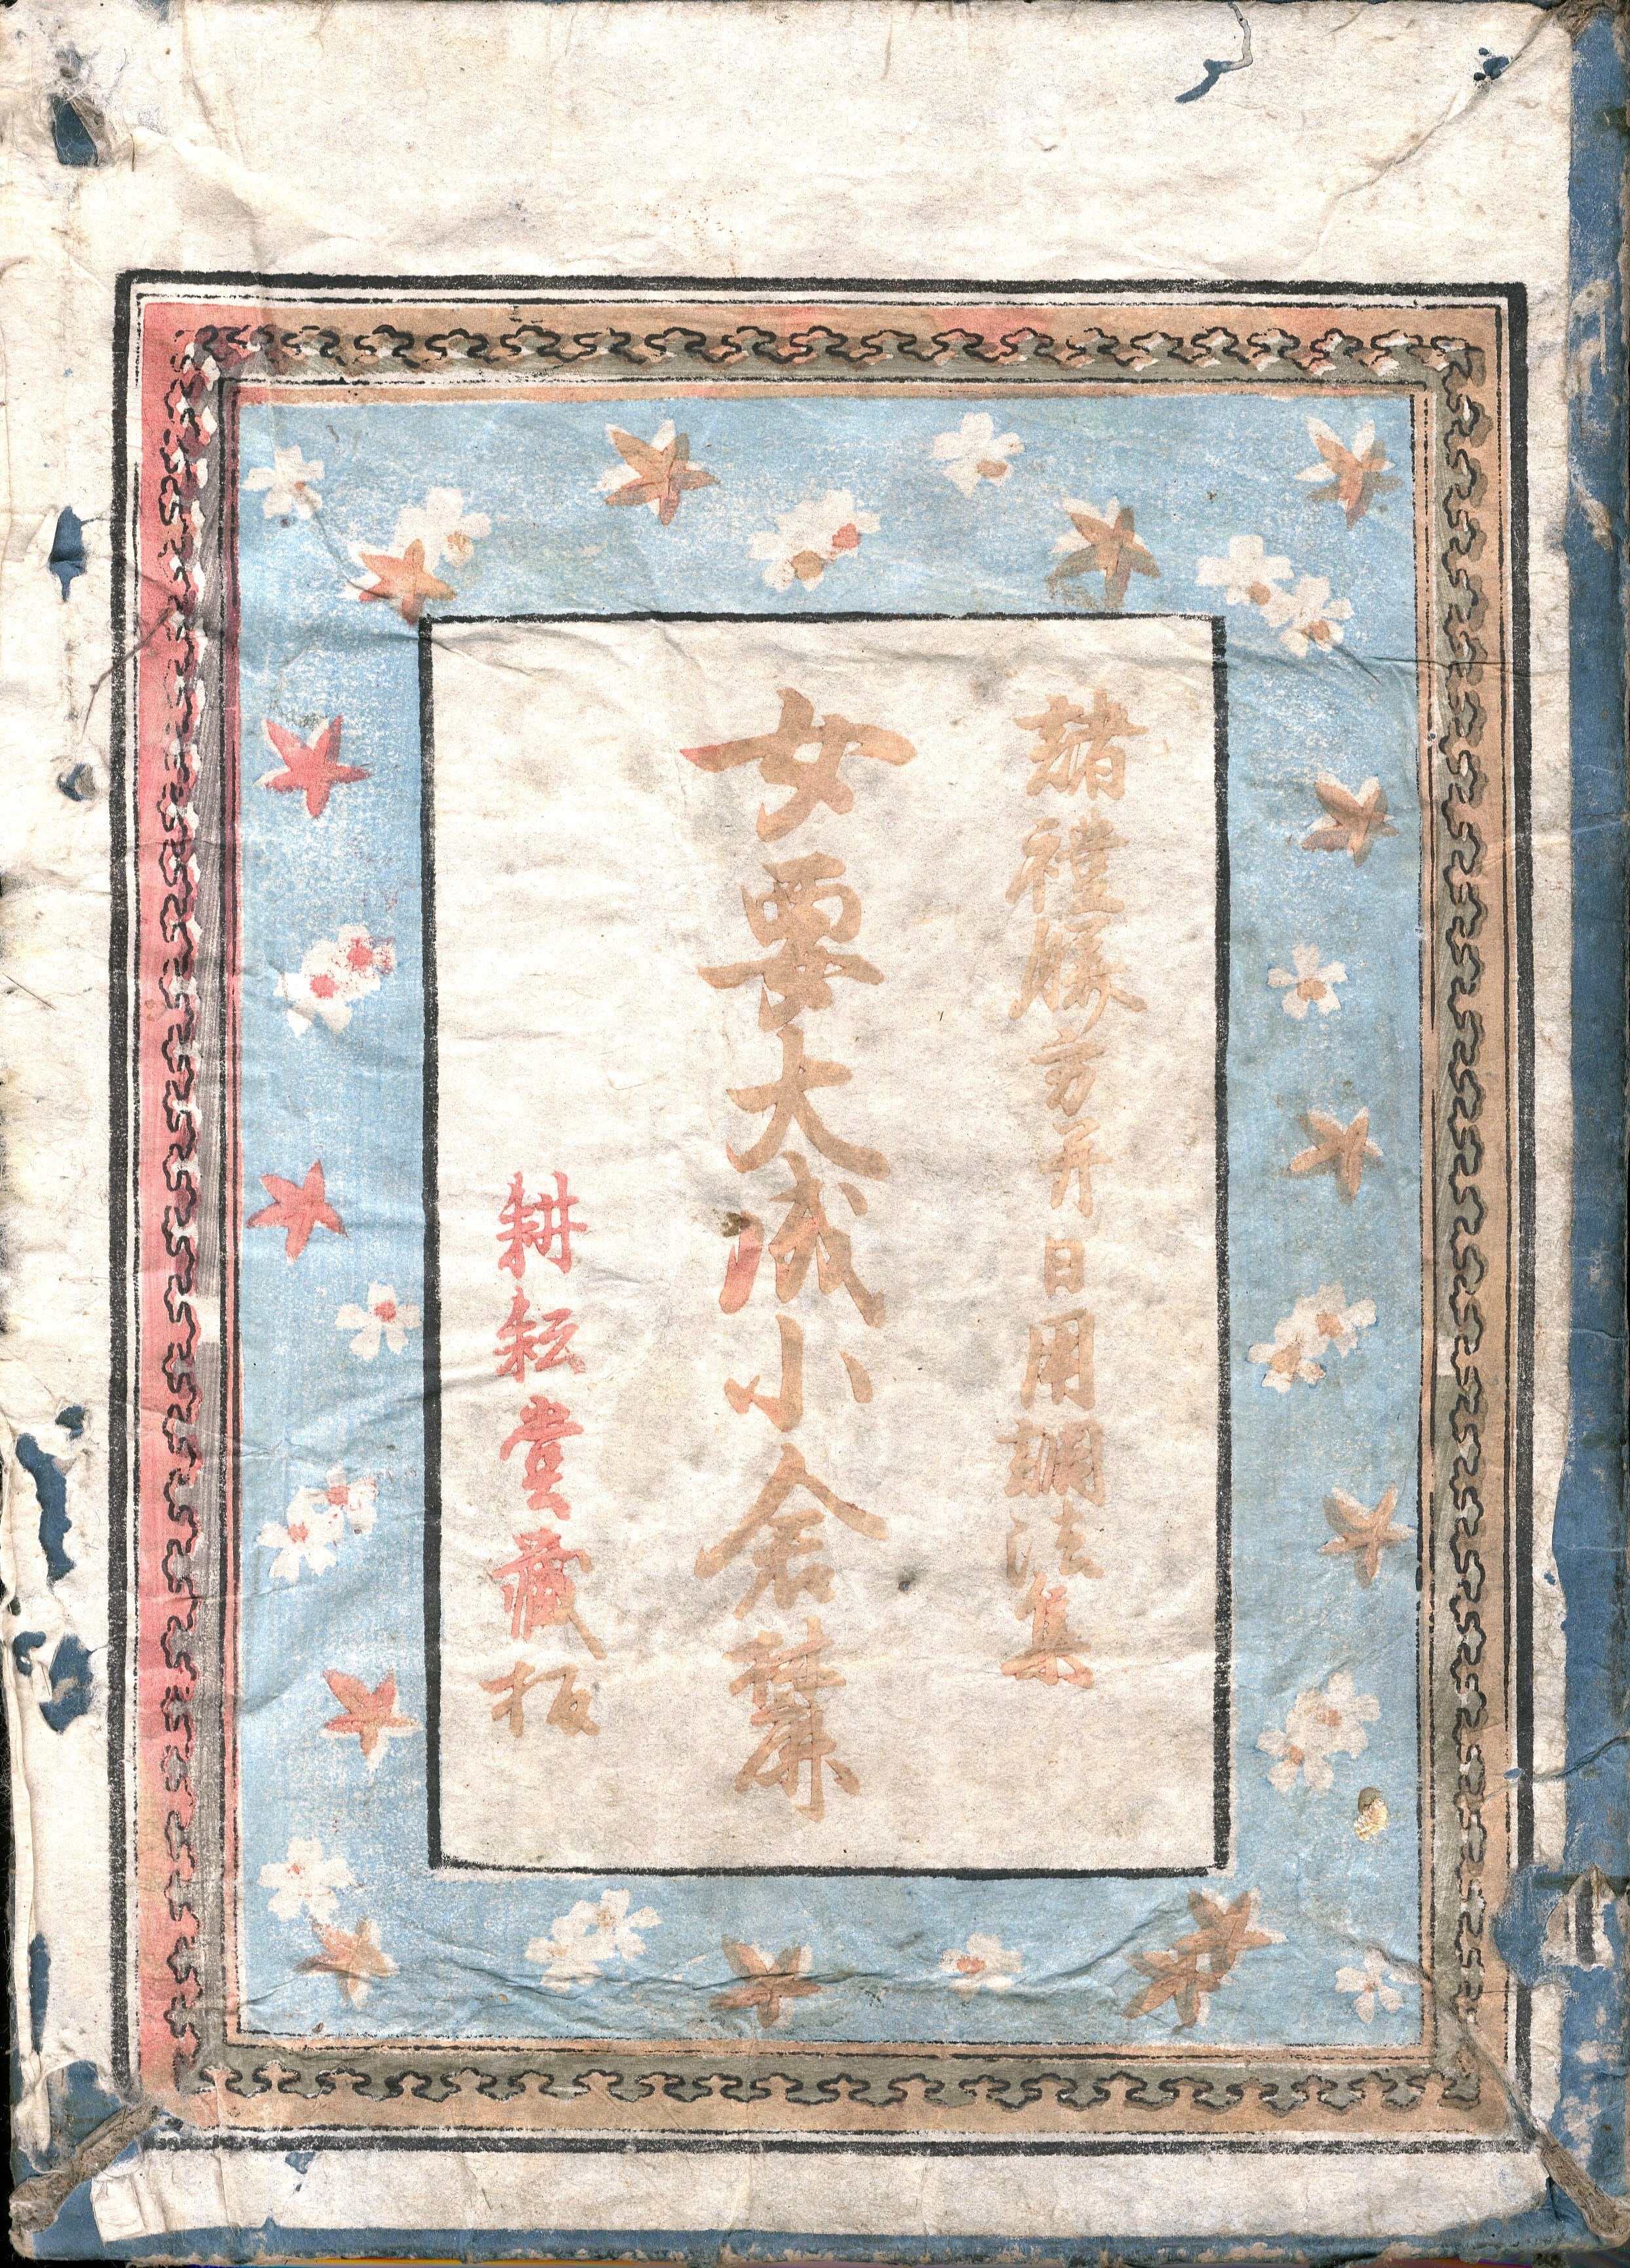 諸禮膳方并日用調法集
女要大成小倉葉
耕耘堂藏板